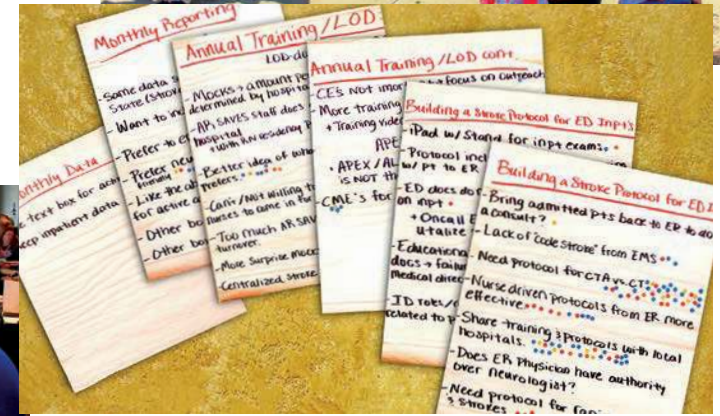 Monthly Data
text box for acti
eep inpatient data
Monthly Reporting
- Some data s
State (Strok
- Want to in
- Prefer to e
- Prefer neu
- Like the ab
for active a
- Other bo
- Other bo
Annual Training/LOD
LOD-do
- Mocks → amount pe
determined by hospita
- AR SAVES Staff does
hospital
+ with RN residency
- Better idea of who
prefers
- Can't/Not willing t
nurses to come in for
- Too much AR SAV
turnover.
- More surprise mock
- Centralized stroke
Annual Training/LOD cont.
- CE's NOT impor → focus on outreach
- More training
+ Training video
APE
• APEX/AL
is NOT th
- CME's for
Building a Stroke Protocol for ED Inpts
- iPad w/ Stand for inpt exams.
- Protocol incl
w/ pt to ER
- ED docs do
on inpt
+ Oncall E
utalize
- Educationa
docs → failur
medical direc
- ID roles/
related to p
Building a Stroke Protocol for ED I
- Bring admitted pts back to ER to do
a consult?
- Lack of "code stroke" from EMS
- Need protocol for CTA vs CT
- Nurse driven protocols from ER more
effective
- Share training & protocols with local
hospitals.
- Does ER Physician have authority
over neurologist?
- Need protocol for
& strokes